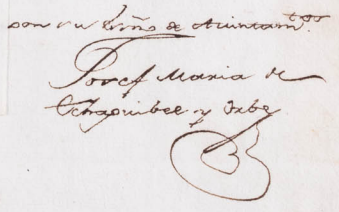 con su Essño de Aiuntam.tos
Josef Maria de
Echaguibel y Yabe